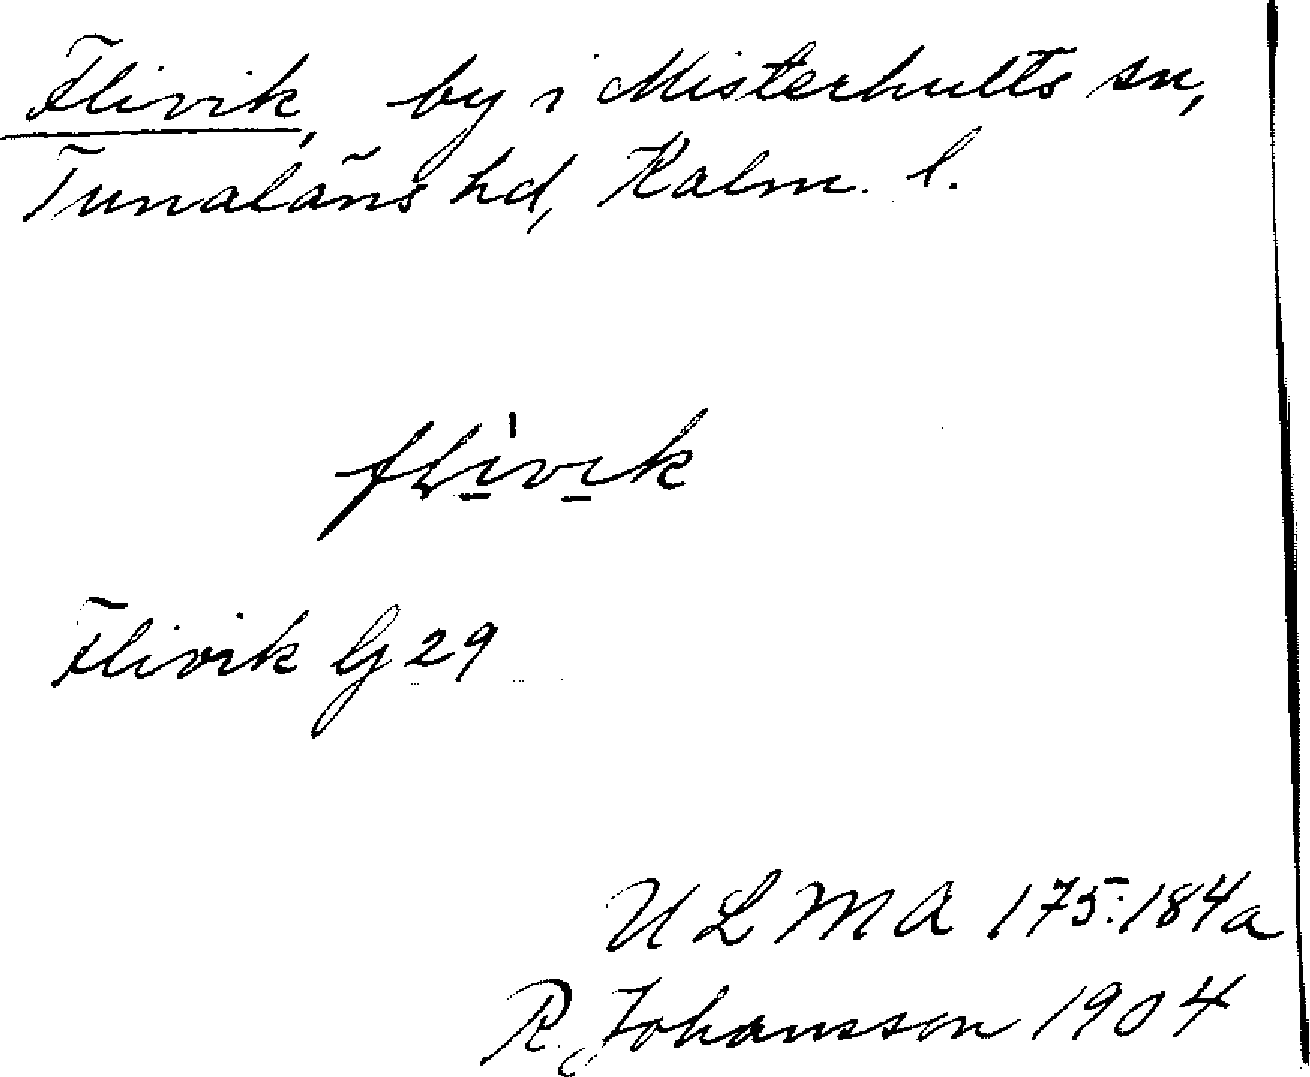 Flivik, by i Misterhults sn,
Tunaläns hd, Kalm. l.
flivik
Flivik G 29
ULMA 175:184a
R. Johansson 1904